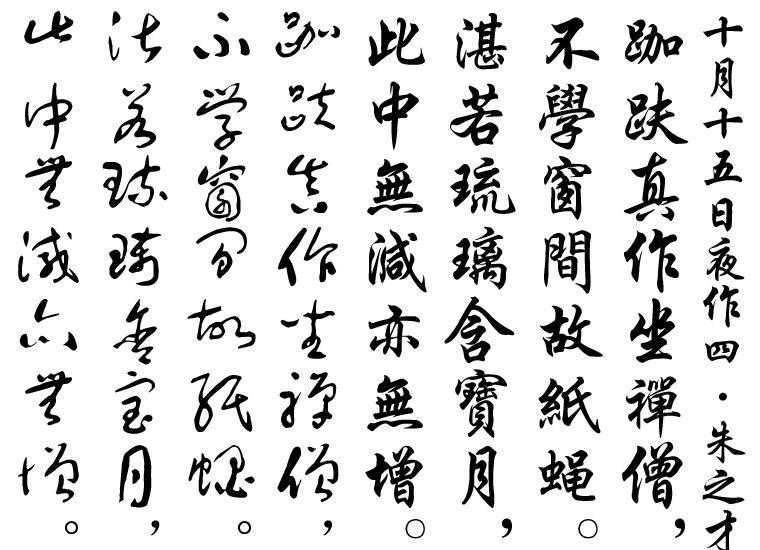 十月十五日夜作四·朱之才
跏趺真作坐禪僧，
不學窗間故紙蝇。
湛若琉璃含寶月，
此中無減亦無增。
跏趺真作坐禅僧，
不学窗间故纸蝇。
湛若琉璃含宝月，
此中無減亦無增。